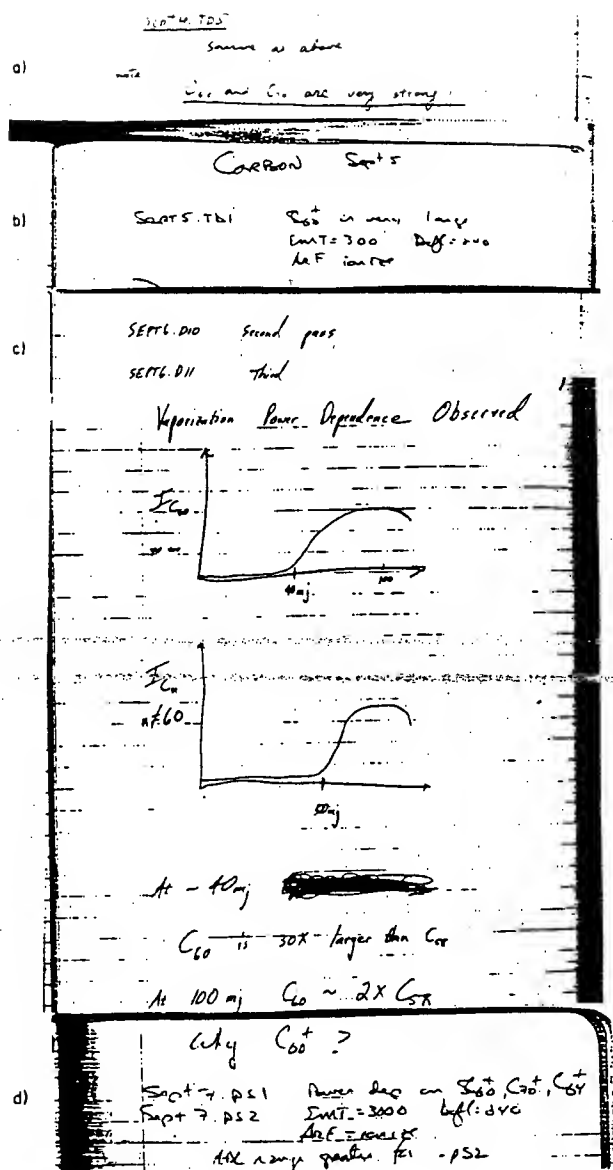 Sept 4. TDS
Same as above
a)
note
C60 and C70 are very strong!
CARBON Sept 5
b)
SEPT 5. TD1 C60+ is very large
EMT=300 Defl=240
ArF ionize
c)
SEPT6.D10 Second pass
SEPT6.D11 Third
Vaporization Power Dependence Observed
I C60
40mj 100
I Cn
n≠60
50mj
At ~ 40mj
C60 is 30X larger than C58
At 100 mj C60 ~ 2X C58
Why C60+ ?
d)
Sept 7. PS1 Power dep on C60+, C70+, C84+
Sept 7. PS2 EMT=3000 Defl=240
ArF = ionize
range greater - PS2